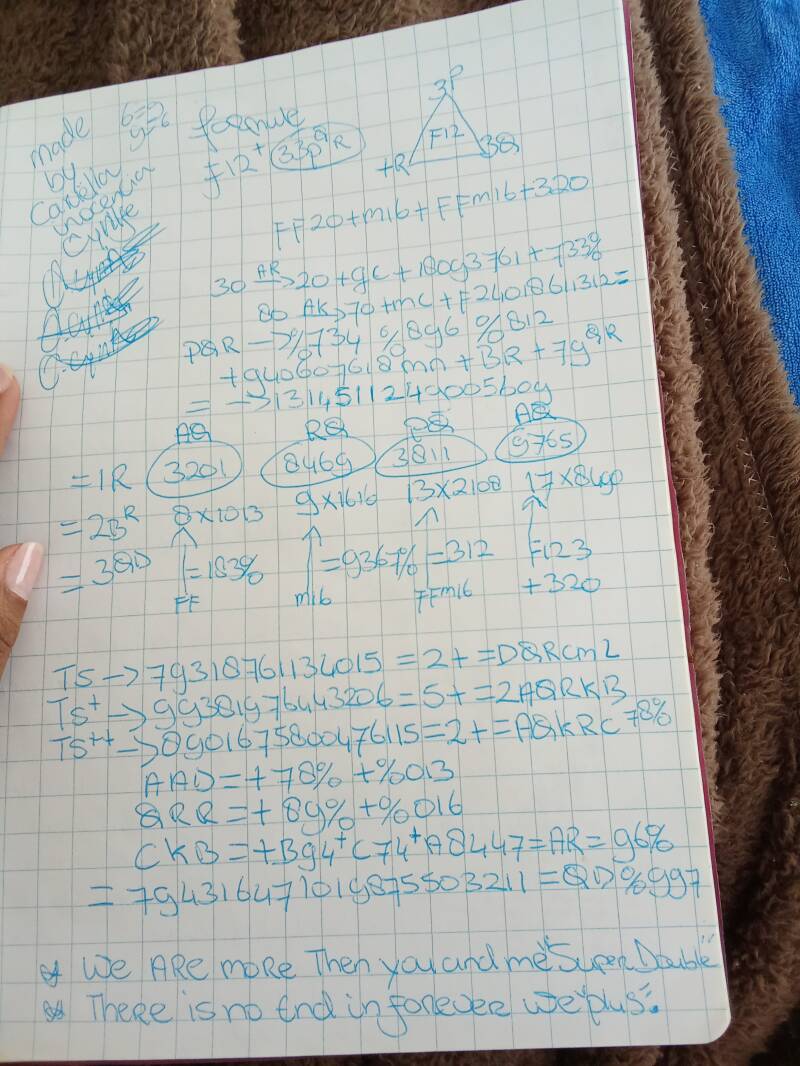 made
by
Cartella
inocencia
Cyntje
6=2
9=6
formule
F12⁺ 33p^QR
3P
F12
+R 3Q
FF20+m16+FFm16+320
30 AR→20+gc+180g3761+733%
80 AK→70+mc+F24018611312=
PQR →%734 %896 %812
+940607618mn+BR+7g^QR
= →13145112490056og
AQ RQ PQ AQ
=1R 3201 8469 3811 9765
=2B^R 8×1013 9×1616 13×2108 17×8490
=3^QD =183% =9367% =312 F123
FF m16 FFm16 +320
TS → 79318761134015=2+=DQRcm2
TS⁺ → 99381976443206=5+=2AQRKB
TS⁺⁺ → 8901675800476115=2+=AQKRC 78%
AAD=+78%+%013
QRR=+89%+%016
CKB=+B94⁺C74⁺A8447=AR=96%
=794316471019875503211=QD%997
We ARE more Then you and me "Super Double"
There is no End in forever we "plus".